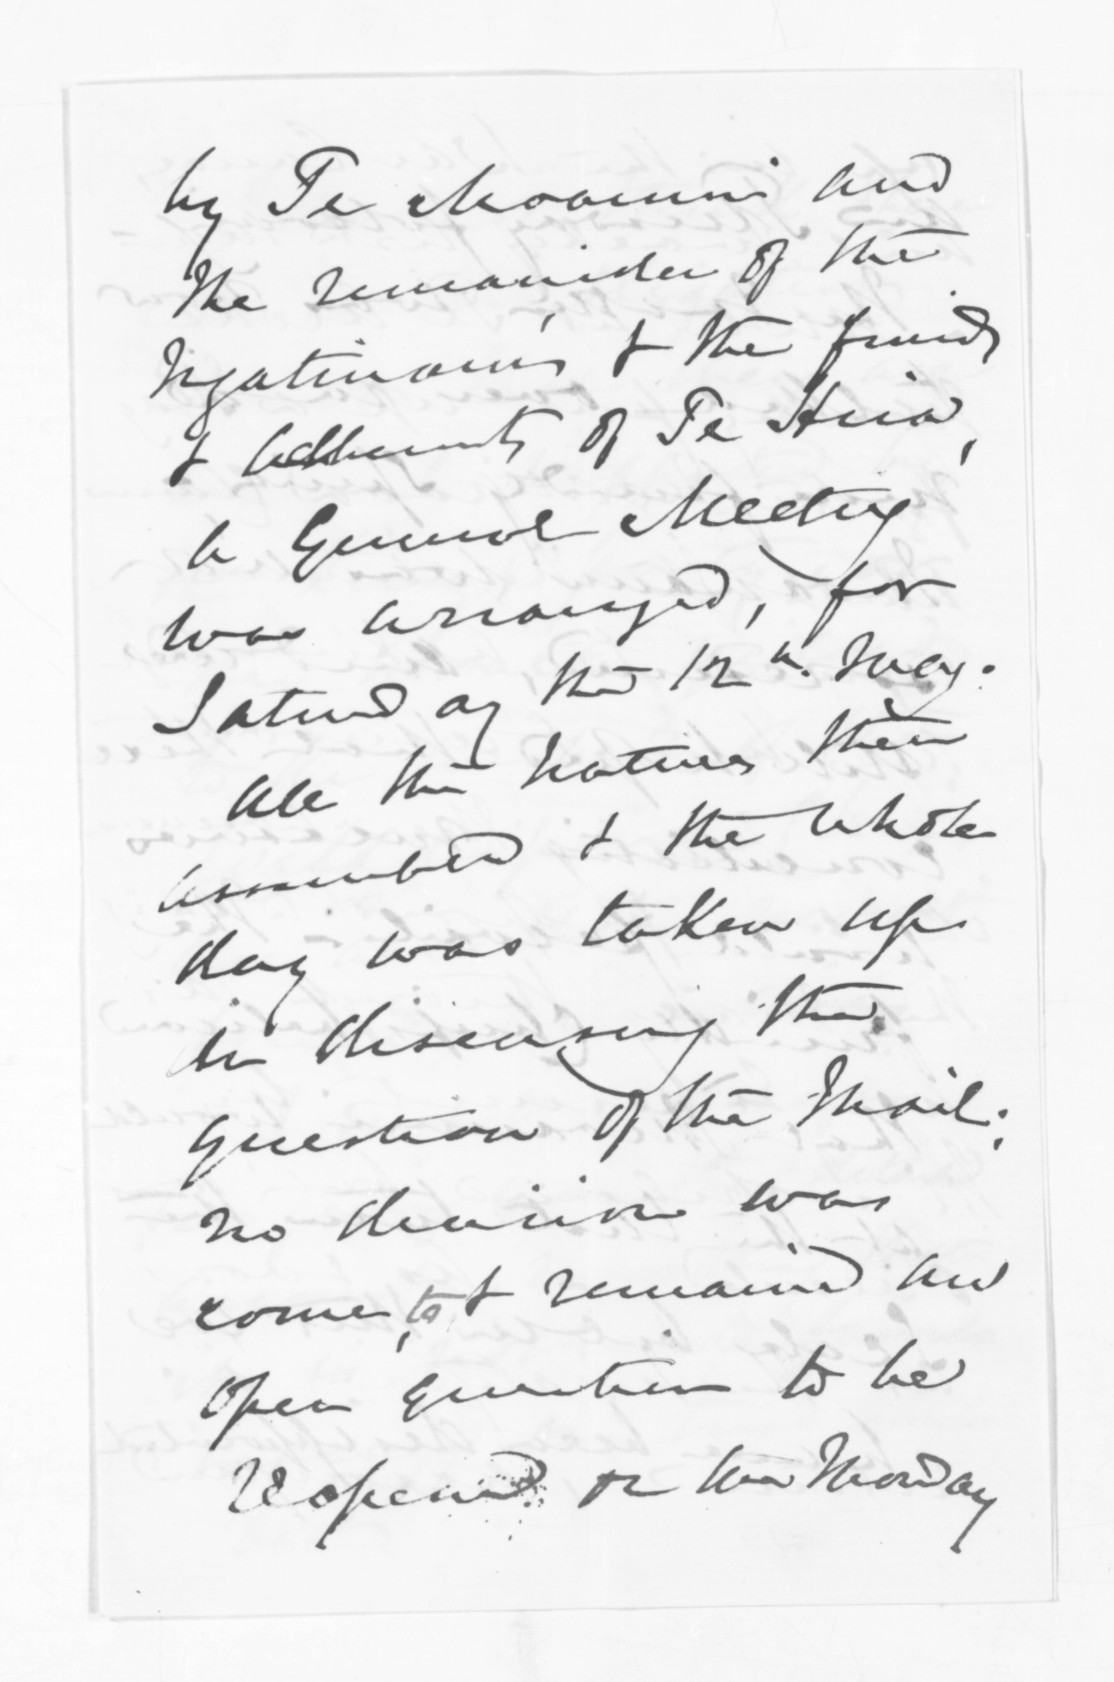 by Te Moanui and
the remainder of the
Ngatinamis & the friends
& adherents of Te Hira,
a General Meeting
was arranged, for
Saturday the 12th. May.
All the Natives then
assembled & the whole
day was taken up
in discussing the
question of the Mail:
no decision was
come to & remained an
open question to be
reopened on the Monday